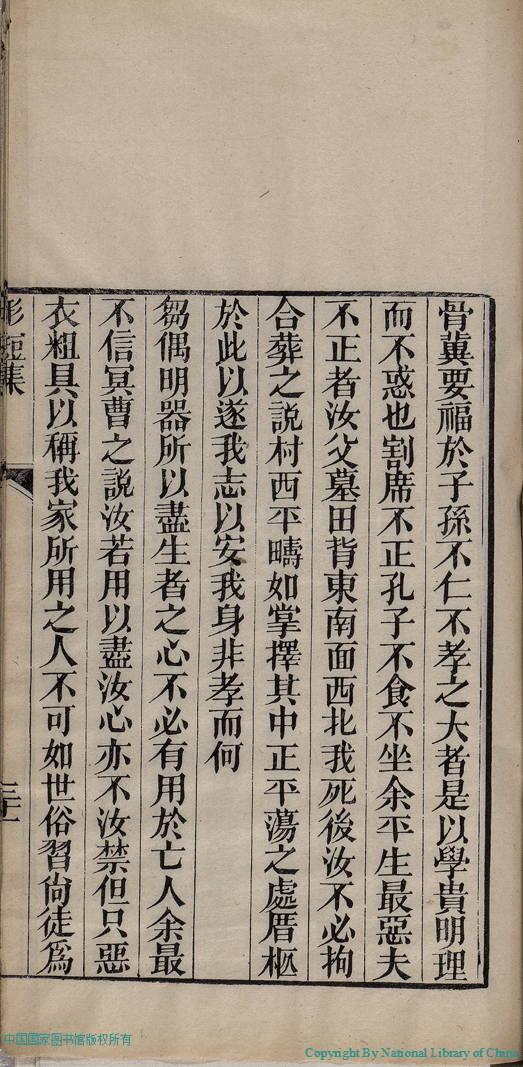 骨冀要福於子孫不仁不孝之大者是以學貴明理
而不惑也割席不正孔子不食不坐余平生最惡夫
不正者汝父墓田背東南面西北我死後汝不必拘
合葬之說村西平疇如掌擇其中正平蕩之處厝柩
於此以遂我志以安我身非孝而何
芻偶明器所以盡生者之心不必有用於亡人余最
不信冥曹之說汝若用以盡汝心亦不汝禁但只惡
衣粗具以稱我家所用之人不可如世俗習尙徒爲
短集
中国国家图书馆版权所有
Copyright By National Library of China